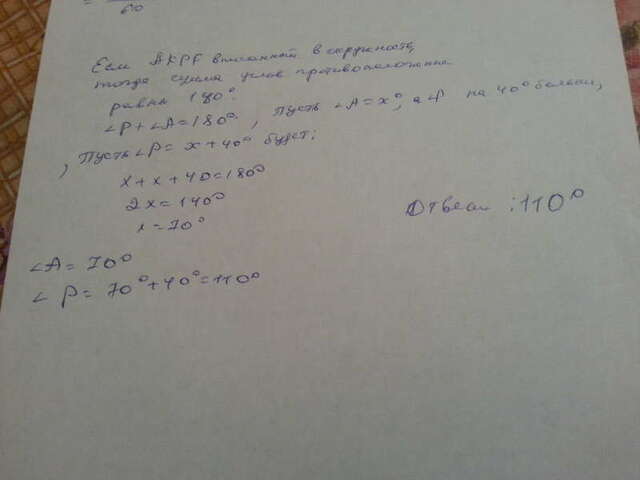 60
Если AKPF вписанный в окружность,
тогда сумма углов противоположные
равны 180°.
∠P+∠A=180°, Пусть ∠A=x°, а P на 40° больше,
, Пусть ∠P= x+40° будет:
x+x+40=180°
2x=140°
x=70°
Ответ :110°
∠A=70°
∠P=70°+40°=110°